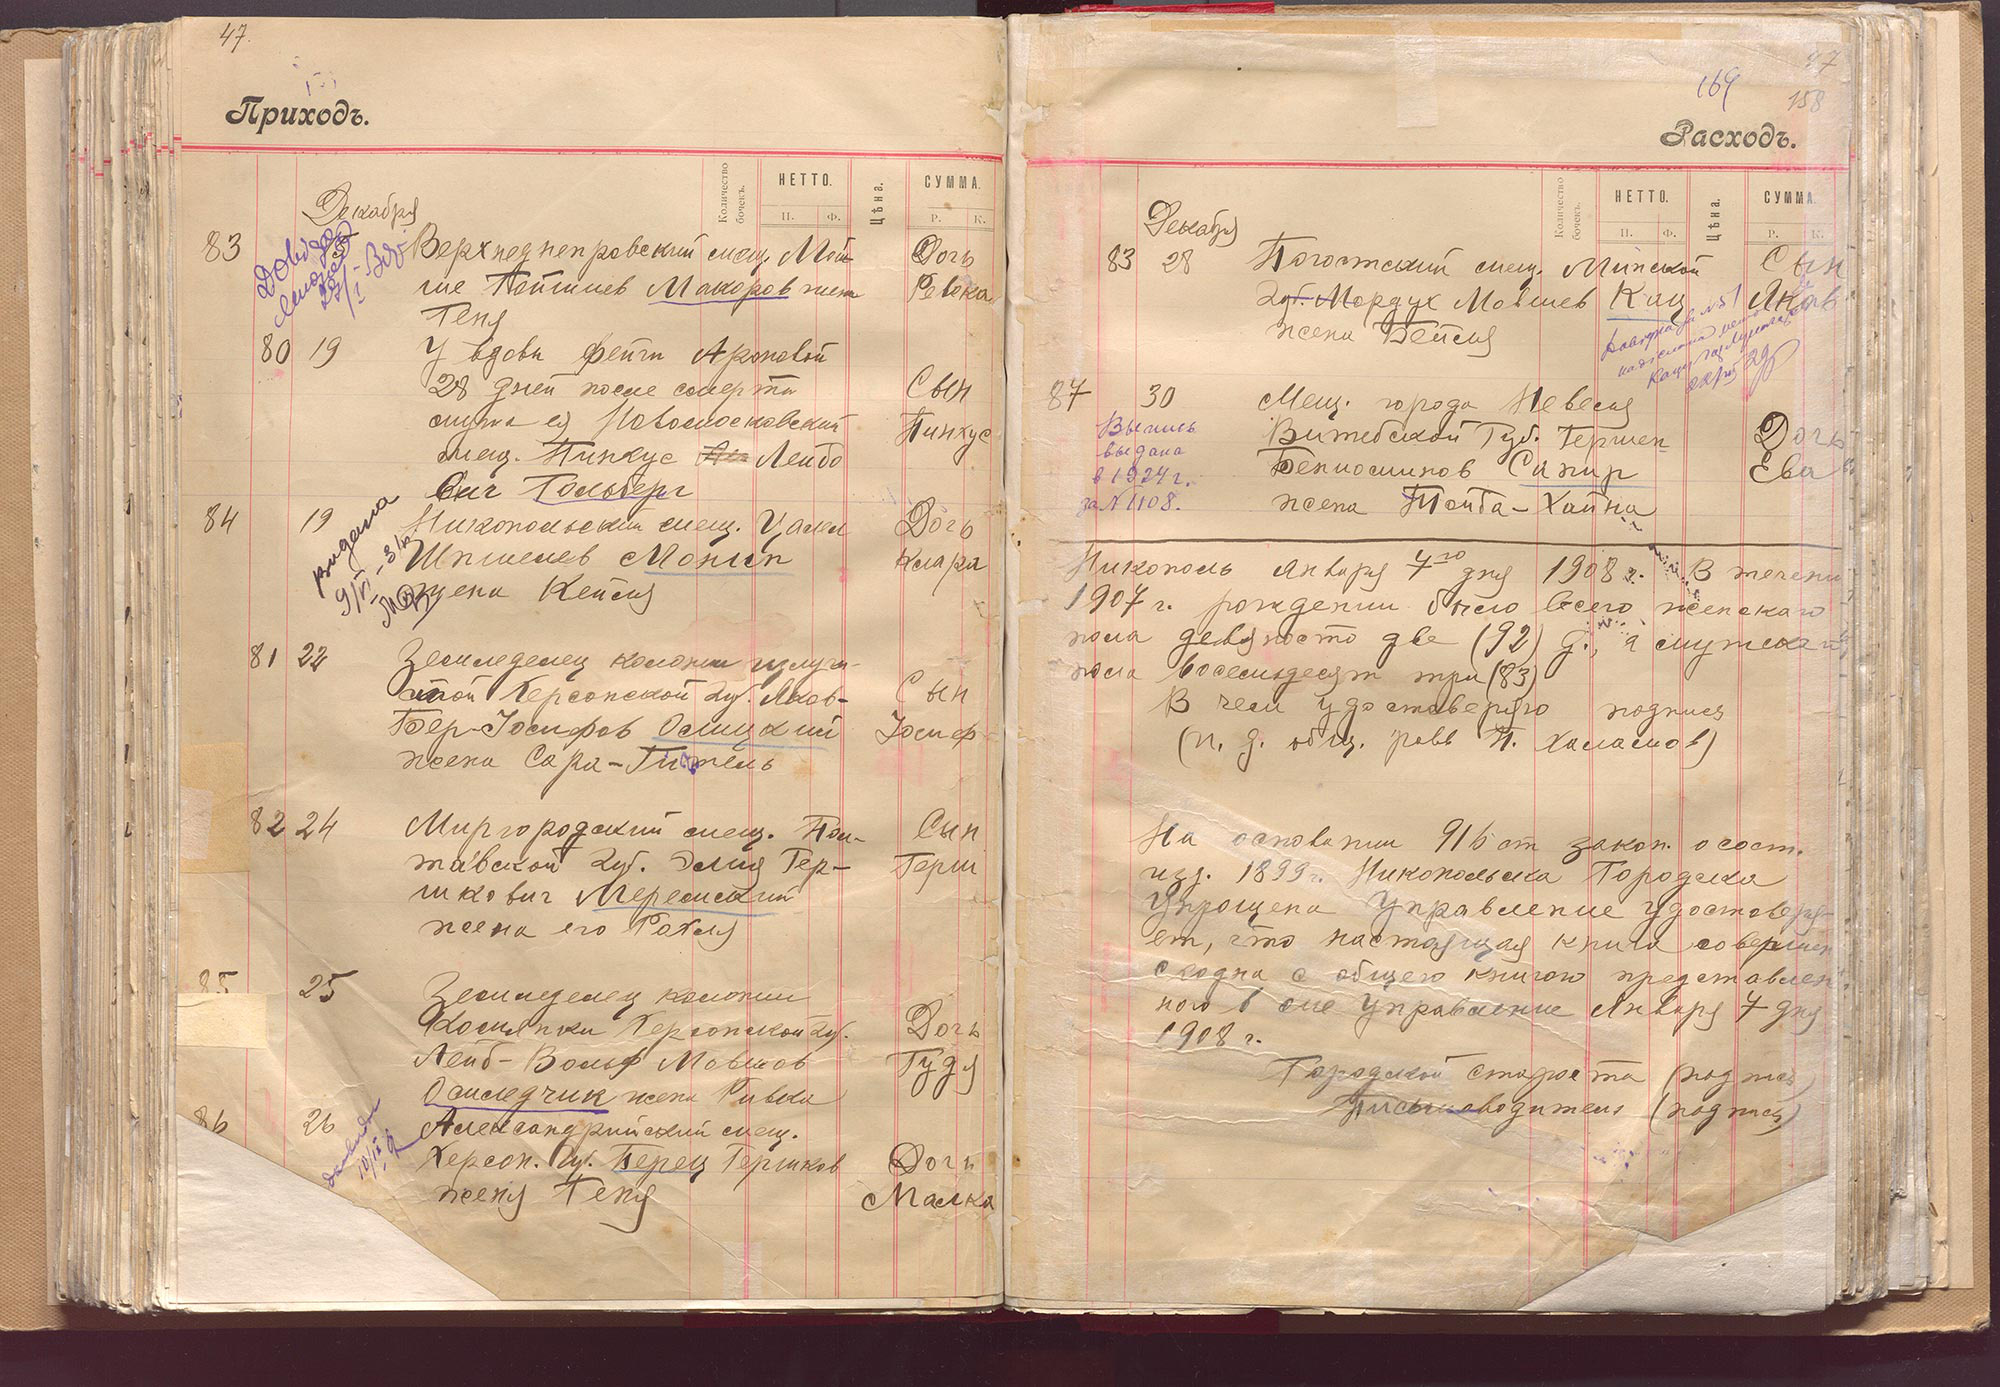 47.
Приходъ.
Количество бочекъ.
НЕТТО.
П. Ф.
Цѣна.
СУММА.
Р. К.
Декабря
83 Верхнеднепровский мещ. Мой- Дочь
ше Макоров жена Ревека
Геня
80 19 У вдови Фейги Ароновой
28 дней после смерти Сын
мужа ея Новомосковский Пинхус
мещ. Пинкус Лейбо
вич Гольберг
84 19 Никопольский мещ. Дочь
Монин Клара
жена Кейля
видана
9/VI - 31
81 22 Земледелец колонии
Херсонской губ. Яков- Сын
Бер-Іосифов Осмицкий Іосиф
жена Сара-Гитель
82 24 Миргородский мещ. Пол- Сын
тавской губ. Элия Гер- Герш
шкович Меремский
жена его Рахля
85 25 Земледелец колонии
Херсонской губ. Дочь
Лейб-Вольф Мовшов Гудя
жена Ривка
86 26 Александрийский мещ.
Херсон. губ. Берец Гершков Дочь
жена Геня Малка
47
169
158
Расходъ.
Количество бочекъ.
НЕТТО.
П. Ф.
Цѣна.
СУММА.
Р. К.
Декабря
83 28 Погостский мещ. Минской Сын
губ. Мордух Мовшев Кац Яков
жена Бейля
87 30 Мещ. города Невеля
Витебской Губ. Гершен Дочь
Бениоминов Сапир Ева
жена Тойба-Хайна
Выпись
выдана
в 1924 г.
за N 1108.
Никополь Января 7го дня 1908 г. В течени
1907 г. рождении было всего женскаго
пола девяносто две (92) д., а мужскаго
пола восемьдесят три (83)
В чем удостоверяю подпись
(И. д. общ. равв П. Халамов)
На основании 916 ст закон. о сост.
изд. 1899 г. Никопольска Городска
Упрощена Управление удостоверя-
ет, что настоящая книга совершен
сходна с общего книгою представлен
ного в сие Управление Января 7 дня
1908 г.
Городской староста (подпись)
Письмоводитель (подпись)